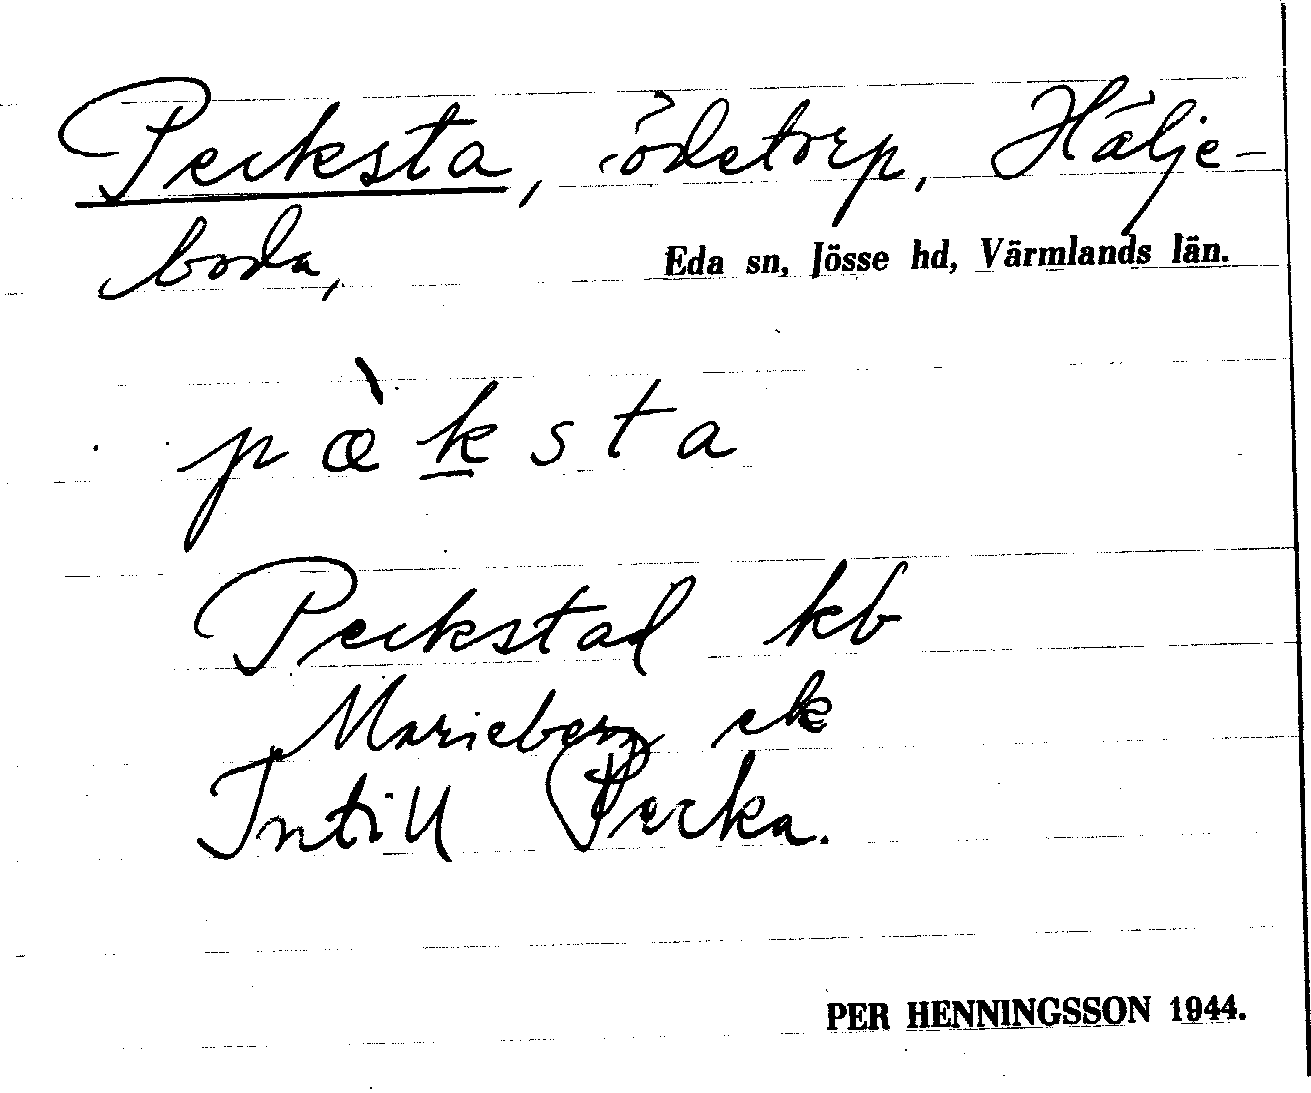 Pecksta, ödetorp, Hälje-
boda,
Eda sn, Jösse hd, Värmlands län.
pæ̀k̲sta
Peckstad kb
Marieberg ek
Intill Pecka.
PER HENNINGSSON 1944.